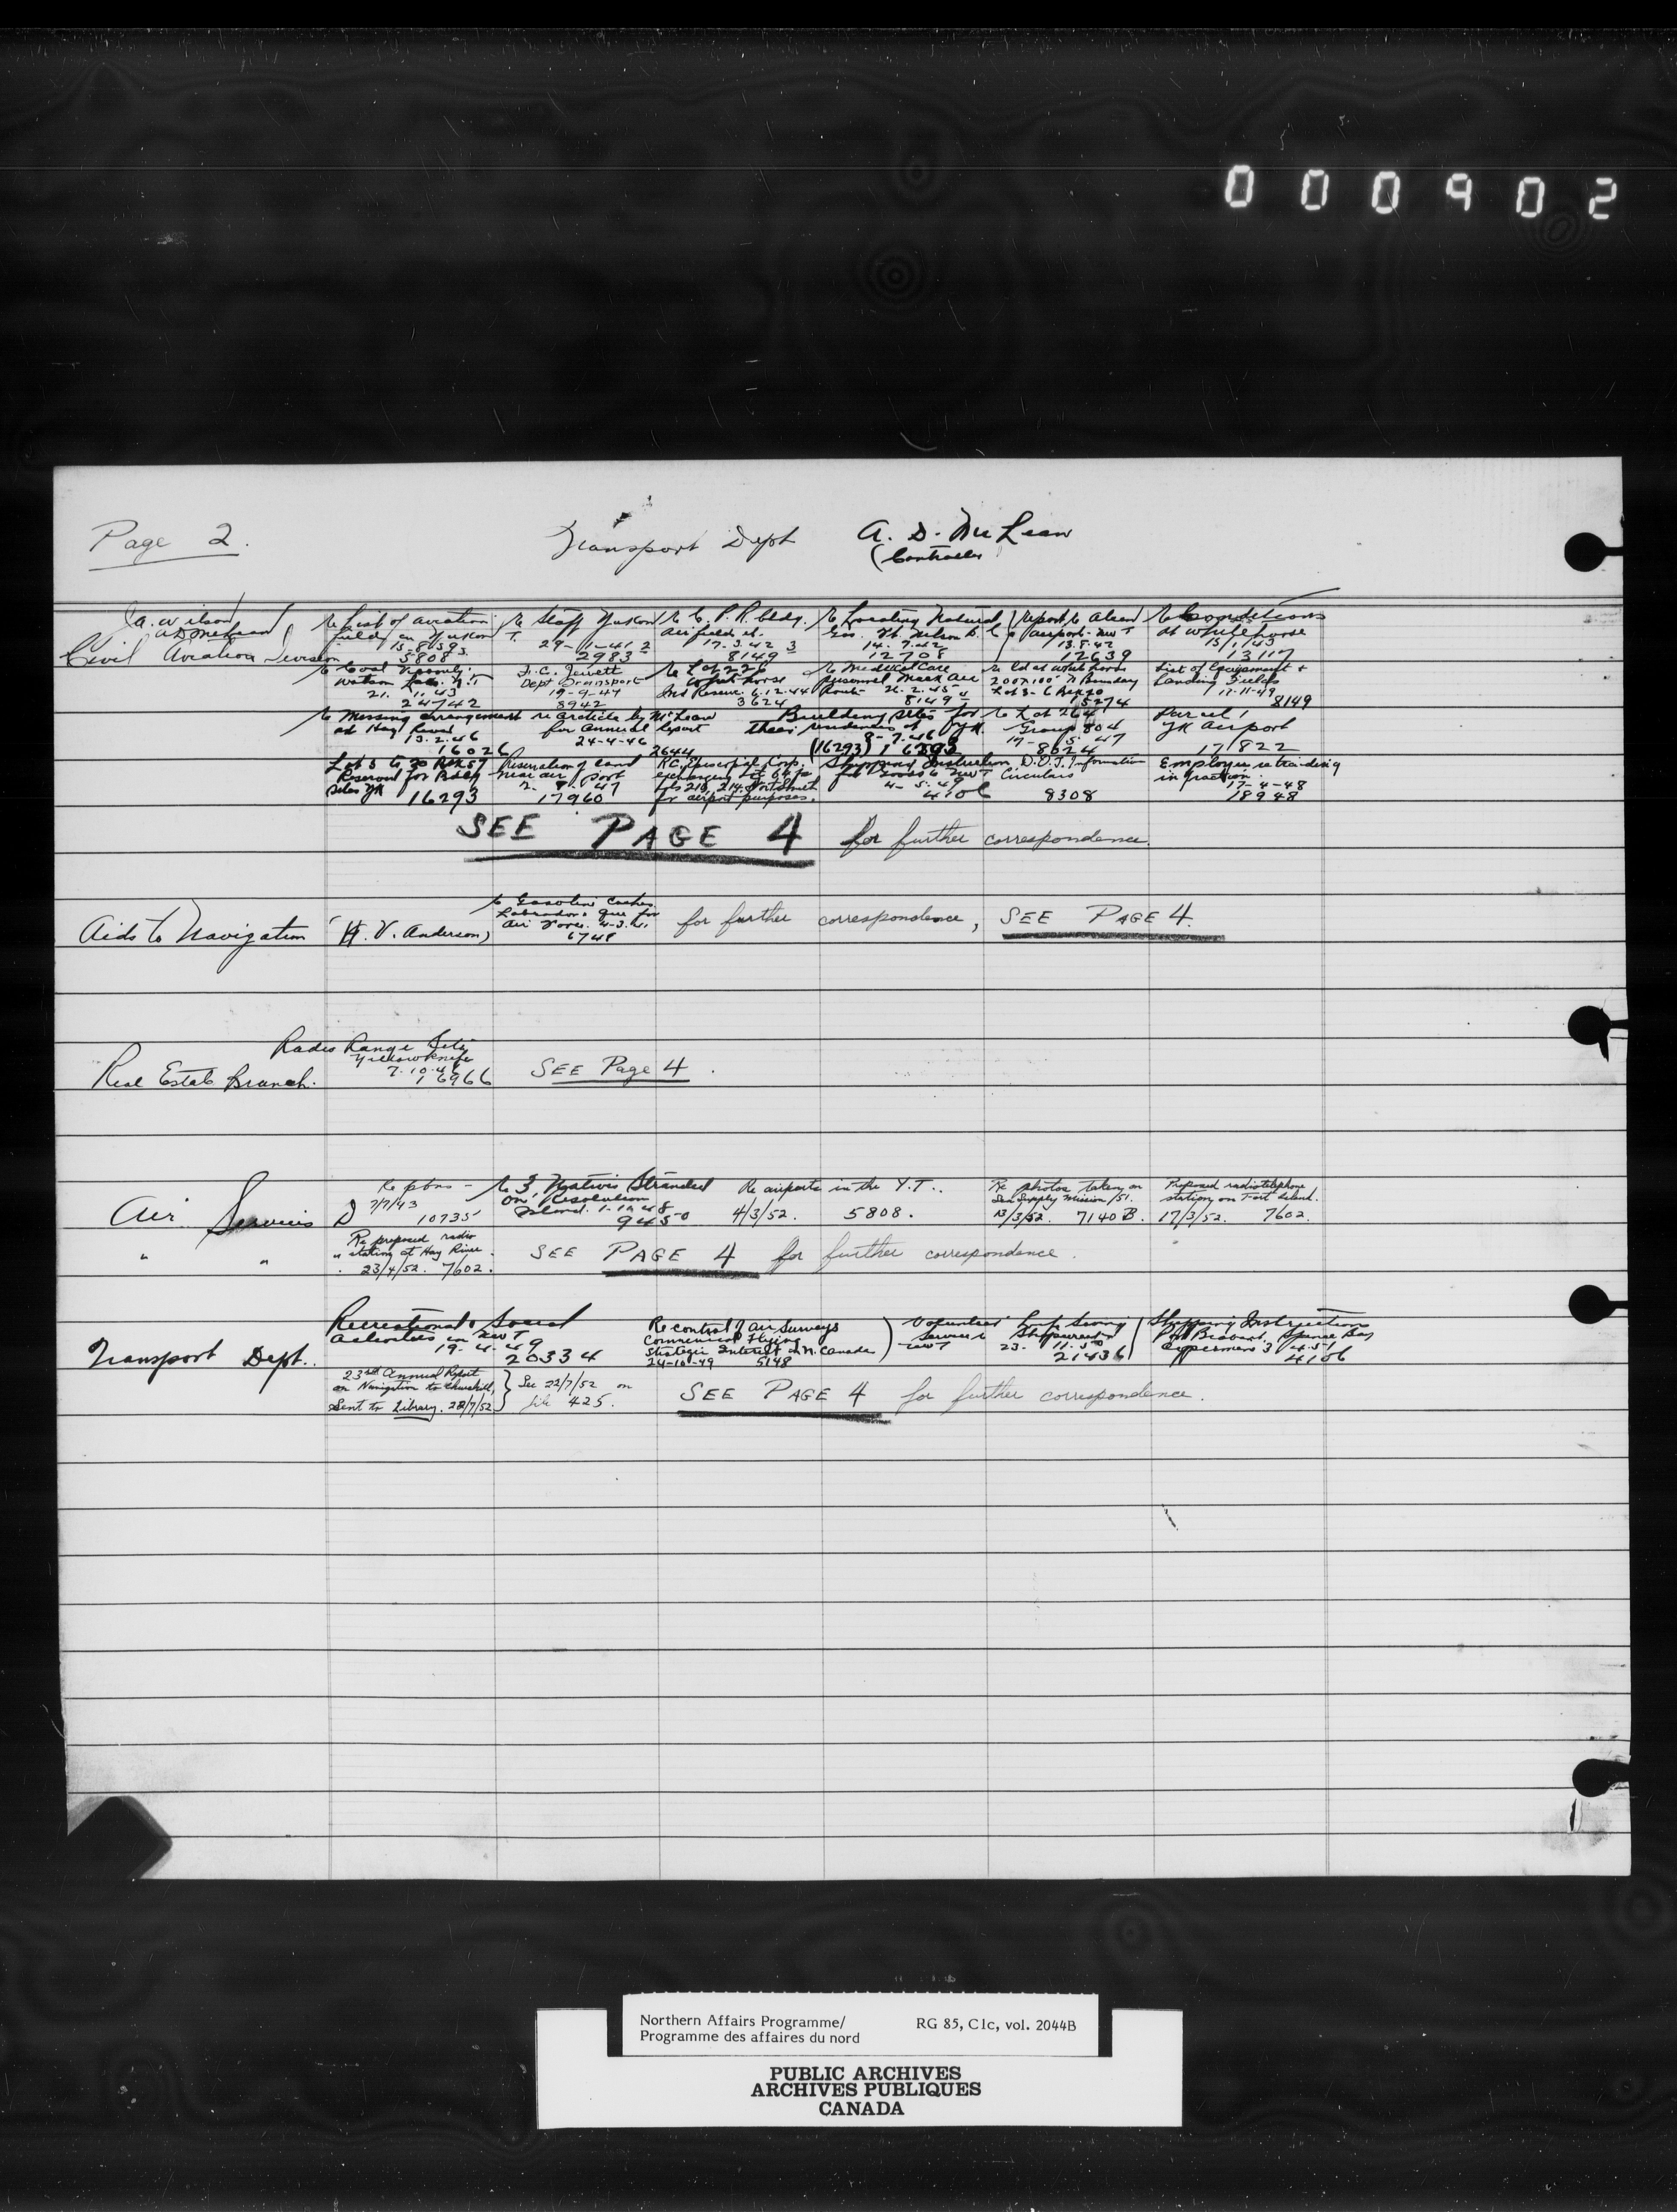 000902
Page 2.
Transport Dept
A. D. McLean
(Controller)
J.A. Wilson
A D McLean
Civil Aviation Division
Re List of aviation
fields in Yukon
15-8-39
5808
Re Staff Yukon
T.
29-11-41
2983
Re C. P. R. bldg.
airfield at
17.3.42
8149
Re Locating Natural
Gas. Ft. Nelson B.C.
14.7.42
12708
report to Alcan
airports NWT
13.8.42
12639
Re Conditions
at Whitehorse
15/1/43
13117
Re Coal
Watson Lake. Y.T.
21. 11. 43
24742
F.C. Jewett
Dept Transport
19-9-44
8942
Re Lot 226
Whitehorse
Ind Reserve. 6.12.44
3624
Re Medical Care
personnel Mack Air
Route 26.2.45
8149
re ld at White horse
200x100' N Boundary
Lot 3-
15274
List of Government +
Landing Fields
17-11-49
8149
Re Messing arrangement
at Hay River
13.2.46
16026
re article by McLean
for annual Report
24-4-46
2644
Building sites for
their residences at YK.
8-7-46
(16293) 16293
Re Lot 264
Group 804
19-5-47
8624
Parcel 1
YK Airport
17822
Lot 5 to 30 Blk 57
Reserved for Bldg
sites YK
16293
Reservation of land
near air port
2. 9. 47
17960
RC. Episcopal Corp.
exchanging lot 64 for
lots 213, 214. Fort Smith
for airport purposes.
Shipping Instruction
for Goods to NWT
4-5.49
4106
D.O.T. Information
Circulars
8308
Employee retraining
17-4-48
18948
SEE PAGE 4 for further correspondence.
Aids to Navigation
(H. V. Anderson)
Re Gasoline Caches
Labrador + Que for
Air Force.
6748
for further correspondence, SEE PAGE 4.
Real Estate Branch.
Radio Range Site
Yellowknife
7.10.46
16966
SEE Page 4.
Air Services
Re pbns -
D 7/7/43
10735
Re 3 Natives Stranded
on Resolution
Island. 1-10-48
9450
Re airports in the Y.T..
4/3/52. 5808.
Re photos taken on
Sea Supply Mission /51.
13/3/52. 7140 B.
Proposed radiotelephone
station on Toat Island.
17/3/52. 7602.
" "
Re proposed radio
station at Hay River.
23/4/52. 7602.
SEE PAGE 4 for further correspondence.
Transport Dept.
Recreational + Social
activities in NWT
19. 4. 49
20334
Re control of air Surveys
Commercial Flying
Strategic Interest in N. Canada
24-10-49 5148
Volunteer
Service
NWT
23. 11.50
21436
Shipping Instruction
Port Brabant. Spence Bay
Coppermine 3/4.51
4106
23rd Annual Report
on Navigation to Churchill,
Sent to Library. 22/7/52
See 22/7/52 on
file 425.
SEE PAGE 4 for further correspondence.
Northern Affairs Programme/
Programme des affaires du nord
RG 85, C1c, vol. 2044B
PUBLIC ARCHIVES
ARCHIVES PUBLIQUES
CANADA